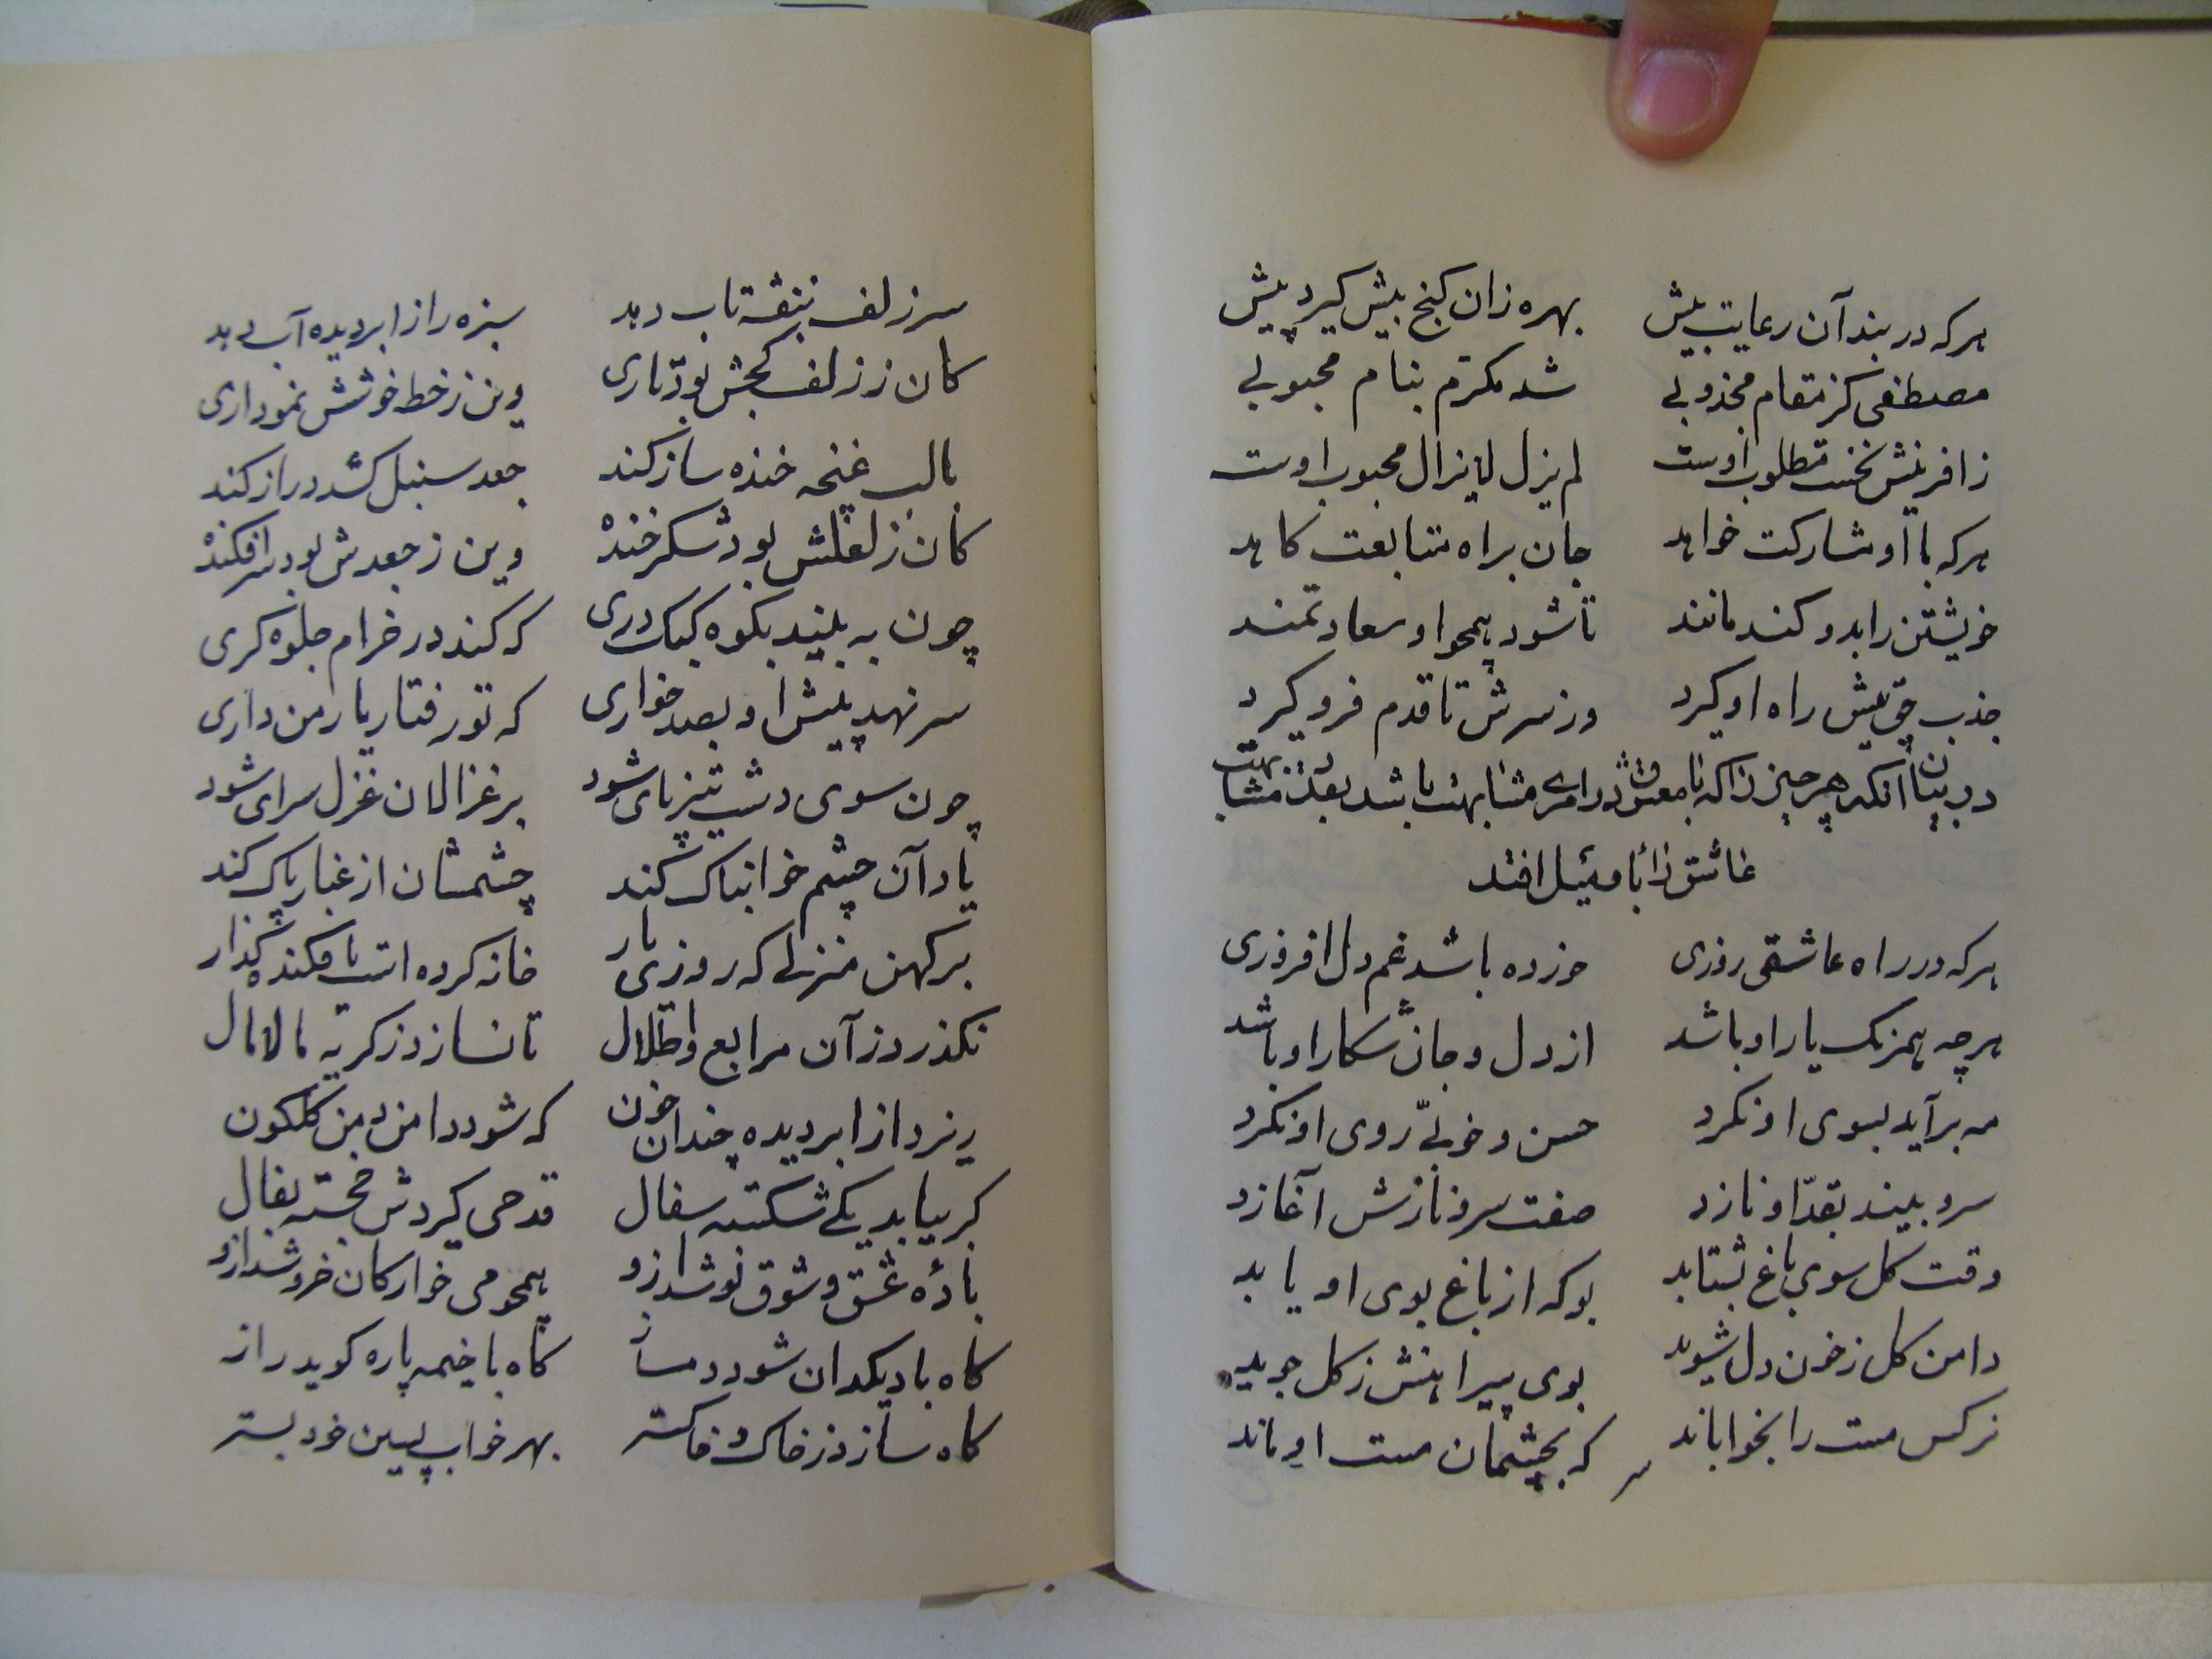 هرکه در بند آن رعایت بیش بهره زان کنج بیش کیرد پیش
مصطفی کز مقام مجذوبی شد مکرم بنام محبوبی
زافرینش نخست مطلوب اوست لم یزل لایزال محبوب اوست
هرکه با او مشارکت خواهد جان براه متابعت کاهد
خویشتن را بدو کند مانند تا شود همچو او سعادتمند
جذب حق پیش راه او کیرد وز سرش تا قدم فرو کیرد
در بیان آنکه هر چیز را که با معشوق در امری مشابهت باشد بقدر مشابهت
عاشق را با و میل افتد
هرکه در راه عاشقی روزی خورده باشد غم دل افروزی
هرچه همرنک یار او باشد از دل و جان شکار او باشد
مه برآید بسوی او نکرد حسن و خوبیّ روی او نکرد
سرو بیند بقدّ او نازد صفت سرو نازش آغازد
وقت کل سوی باغ بشتابد بوکه از باغ بوی او یابد
دامن کل زخون دل شوید بوی پیراهنش زکل جوید
نرکس مست را بخواباند که بچشمان مست او ماند
سر
سر زلف بنفشه تاب دهد سبزه را از ابر دیده آب دهد
کان ز زلف کجش بود تاری وین زخط خوشش نموداری
با لب غنچه خنده ساز کند جعد سنبل کشد دراز کند
کان ز لعلش بود شکرخنده وین ز جعدش بود سرافکنده
چون به بیند بکوه کبک دری که کند در خرام جلوه کری
سر نهد پیش او بصد خواری که تو رفتار یار من داری
چون سوی دشت تیز پای شود بر غزالان غزل سرای شود
یاد آن چشم خوابناک کند چشمشان از غبار پاک کند
بر کهن منزلی که روزی یار خانه کرده است یا فکنده کذار
نکذرد زآن مرابع و اطلال تا نسازد ز کریه مالامال
ریزد از ابر دیده چندان خون که شود دامن دمن کلکون
کر بیابد یکی شکسته سفال قدحی کیردش خجسته بفال
بادهٔ عشق و شوق نوشد ازو همچو می خوارکان خروشد ازو
کاه با دیکدان شود دمساز کاه با خیمه پاره کوید راز
کاه سازد ز خاک و خاکستر بهر خواب پسین خود بستر